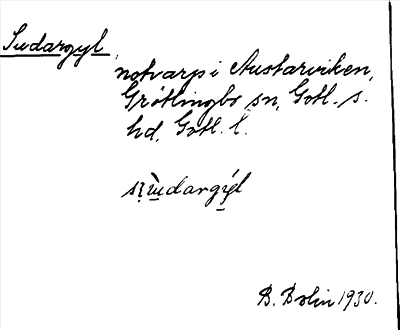 Sudargyl,
notvarp i Austarviken,
Grötlingbo sn, Gotl. s.
hd, Gotl. l.
B. Bolin 1930.